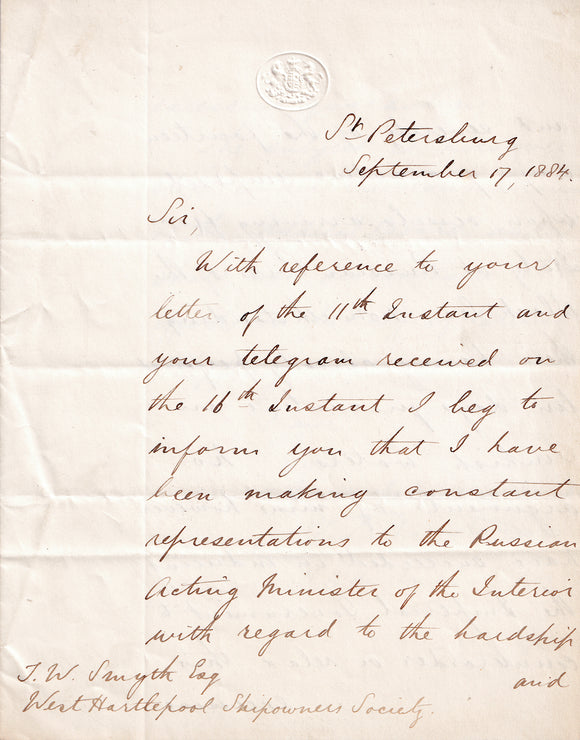 St. Petersburg
September 17, 1884.
Sir,
With reference to your
letter of the 11th Instant and
your telegram received on
the 16th Instant I beg to
inform you that I have
been making constant
representations to the Russian
Acting Minister of the Interior
with regard to the hardship
and
T. W. Smyth Esq
West Hartlepool Shipowners Society.